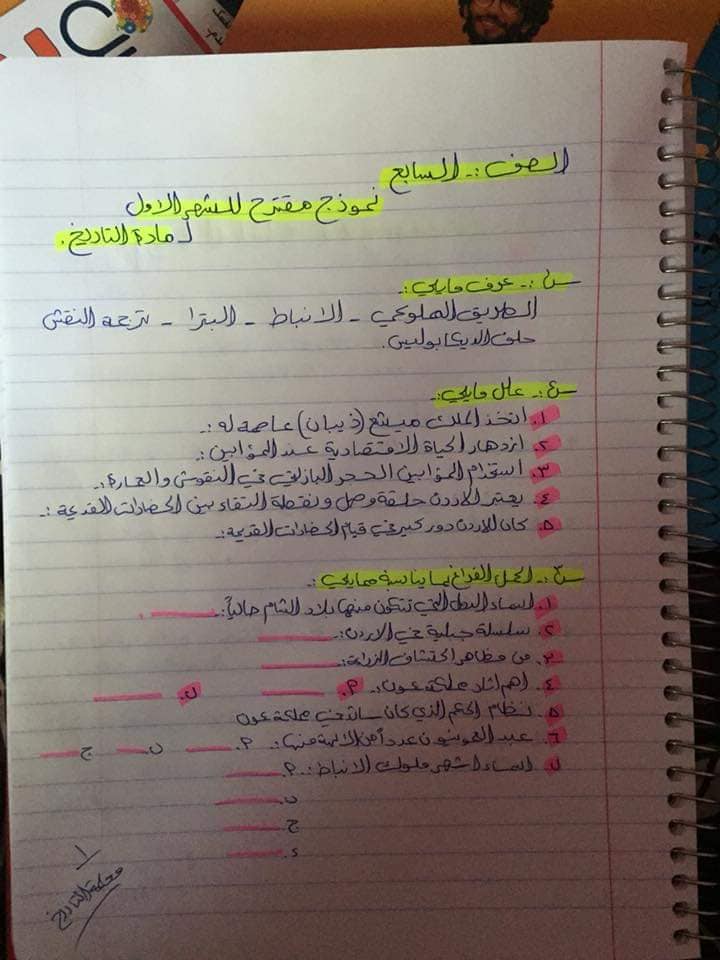 الصف :- السابع
نموذج مقترح للشهر الاول
لمادة التاريخ .
س١:- عرف مايلي:
الطريق الملوكي - الانباط - البترا - ترجمة النقش
حلف الديكابوليس.
س٢:- علل مايلي:
١. اتخذ الملك ميشع (ذيبان) عاصمه له :-
٢. ازدهار الحياة الاقتصادية عند المؤابين :
٣. استخدام المؤابين الحجر البازلتي في النقوش والعمارة :-
٤. يعتبر الاردن حلقة وصل ونقطة التقاء بين الحضارات القديمة :-
٥. كان للاردن دور كبير في قيام الحضارات القديمة:
س٣:- اكمل الفراغ بما يناسبه ممايلي :-
١. اسماء الدول التي تتكون منها بلاد الشام حالياً :
٢. سلسلة جبلية في الاردن:
٣. من مظاهر اكتشاف الزراعة:
٤. اهم اثار مملكة عمون :- ٢. ب.
٥. نظام الحكم الذي كان سائد في مملكة عمون
٦. عبد العمونيون عدداً من الالهة منها :- ٢. ب. ج.
٧. اسماء اشهر ملوك الانباط :- ٢.
ب.
ج.
د.
١
معلمة التاريخ